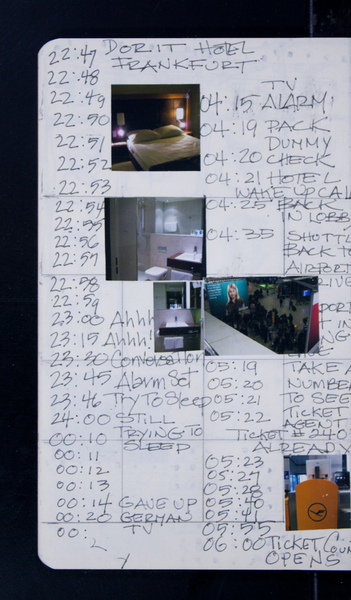 22:47 DORIT HOTEL
22:48 FRANKFURT
22:49
22:50
22:51
22:52
22:53
22:54
22:55
22:56
22:57
22:58
22:59
23:00 Ahhh
23:15 Ahhh!
23:30 Conversation
23:45 Alarm Set
23:46 Try To Sleep
24:00 STILL
00:10 TRYING TO
SLEEP
00:11
00:12
00:13
00:14 GAVE UP
00:20 GERMAN
00: TV
TV
04:15 ALARM
04:19 PACK
DUMMY
04:20 CHECK
04:21 HOTEL
WAKE UP CALL
04:25 BACK
IN LOBBY
04:35 SHUTTLE
BACK TO
AIRPORT
05:19 TAKE A
05:20 NUMBER
05:21 TO SEE
05:22 TICKET
AGENT
TICKET #240
ALREADY
05:23
05:27
05:28
05:40
05:41
05:55
06:00 TICKET COUN
OPENS